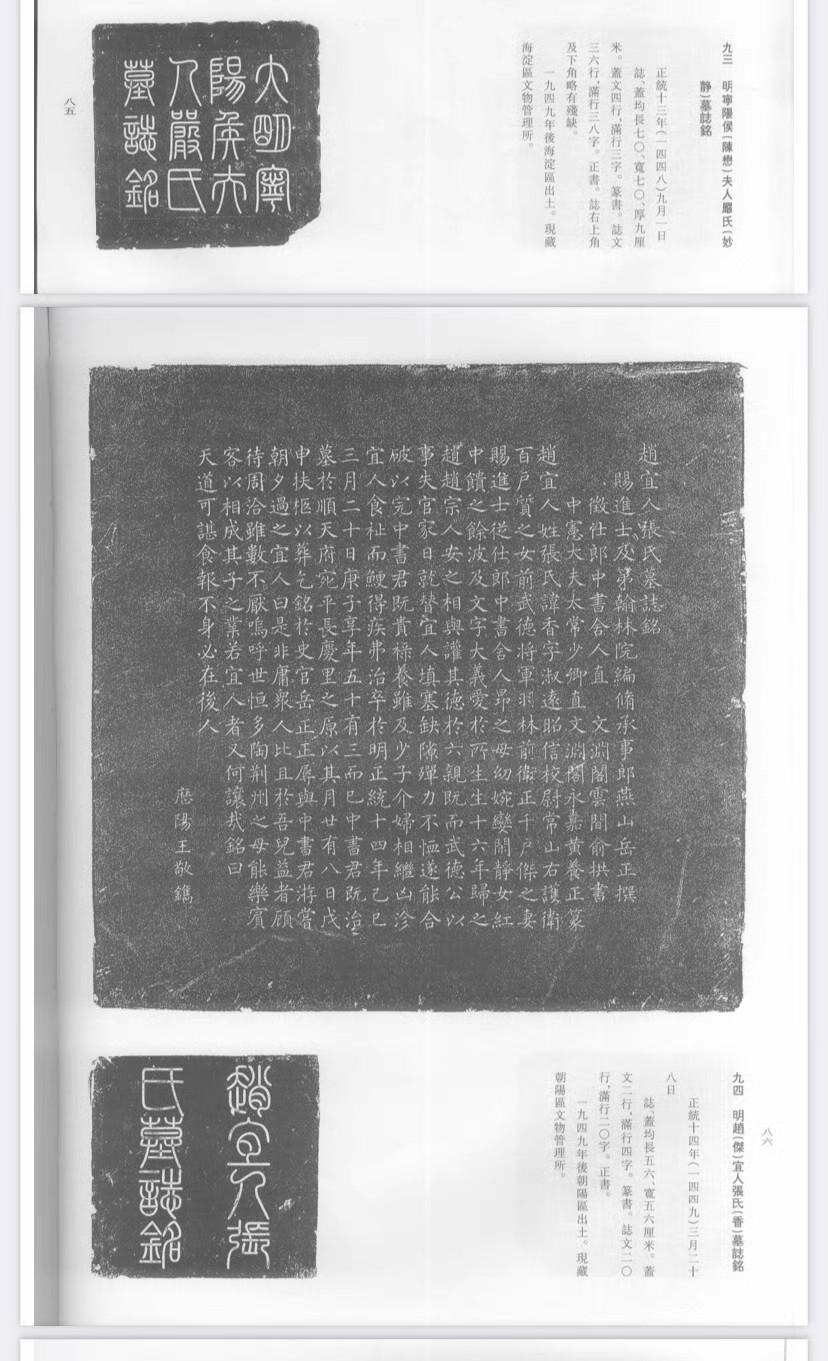 九三　明寧陽侯︵陳懋︶夫人嚴氏︵妙
靜︶墓誌銘
正統十三年︵一四四八︶九月一日
誌、蓋均長七〇、寬七〇、厚九厘
米。蓋文四行，滿行三字。篆書。誌文
三六行，滿行三八字。正書。誌右上角
及下角略有殘缺。
一九四九年後海淀區出土。現藏
海淀區文物管理所。
大明寧
陽侯夫
人嚴氏
墓誌銘
八五
趙宜人張氏墓誌銘
賜進士及第翰林院編脩承事郎燕山岳正撰
徵仕郎中書舍人直　文淵閣雲間俞拱書
中憲大夫太常少卿直文淵閣永嘉黃養正篆
趙宜人姓張氏諱香字淑遠昭信校尉常山右護衛
百戶質之女前武德將軍羽林前衛正千戶傑之妻
賜進士從仕郎中書舍人昂之母幼婉孌閑靜女紅
中饋之餘波及文字大義愛於所生生十六年歸之
趙趙宗人安之相與讙其德於六親既而武德公以
事失官家日就替宜人填塞缺隙殫力不恤遂能合
破以完中書君既貴祿養雖及少子介婦相繼凶沴
宜人食祉而鯁得疾弗治卒於明正統十四年己巳
三月二十日庚子享年五十有三而已中書君既治
墓於順天府宛平長慶里之原以其月廿有八日戊
申扶柩以葬乞銘於史官岳正正辱與中書君游嘗
朝夕過之宜人曰是非庸衆人比且於吾兒益者顧
待周洽雖數不厭嗚呼世恒多陶荆州之母能樂賓
客以相成其子之業若宜人者又何讓哉銘曰
天道可諶食報不身必在後人
應陽王敬鐫
八六
九四　明趙︵傑︶宜人張氏︵香︶墓誌銘
正統十四年︵一四四九︶三月二十
八日
誌、蓋均長五六、寬五六厘米。蓋
文二行，滿行四字。篆書。誌文二〇
行，滿行二〇字。正書。
一九四九年後朝陽區出土。現藏
朝陽區文物管理所。
趙宜人張
氏墓誌銘